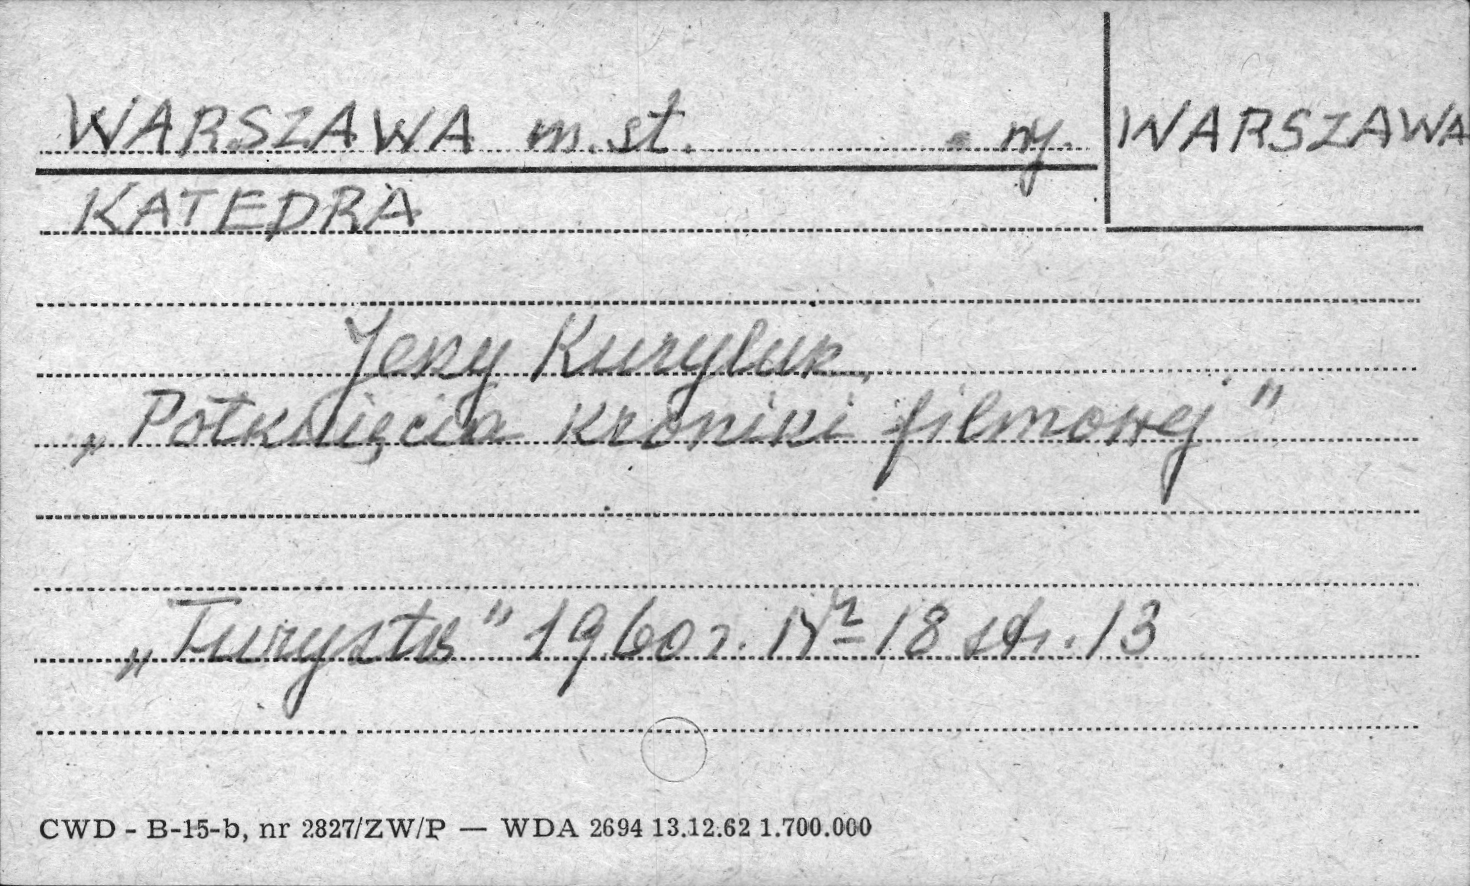 WARSZAWA m.st. ny. WARSZAWA
KATEDRA
Jerzy Kuryluk,
„Potknięcia kroniki filmowej"
„Turysta" 1960 r. Nr 18 str. 13
CWD - B-15-b, nr 2827/ZW/P — WDA 2694 13.12.62 1.700.000